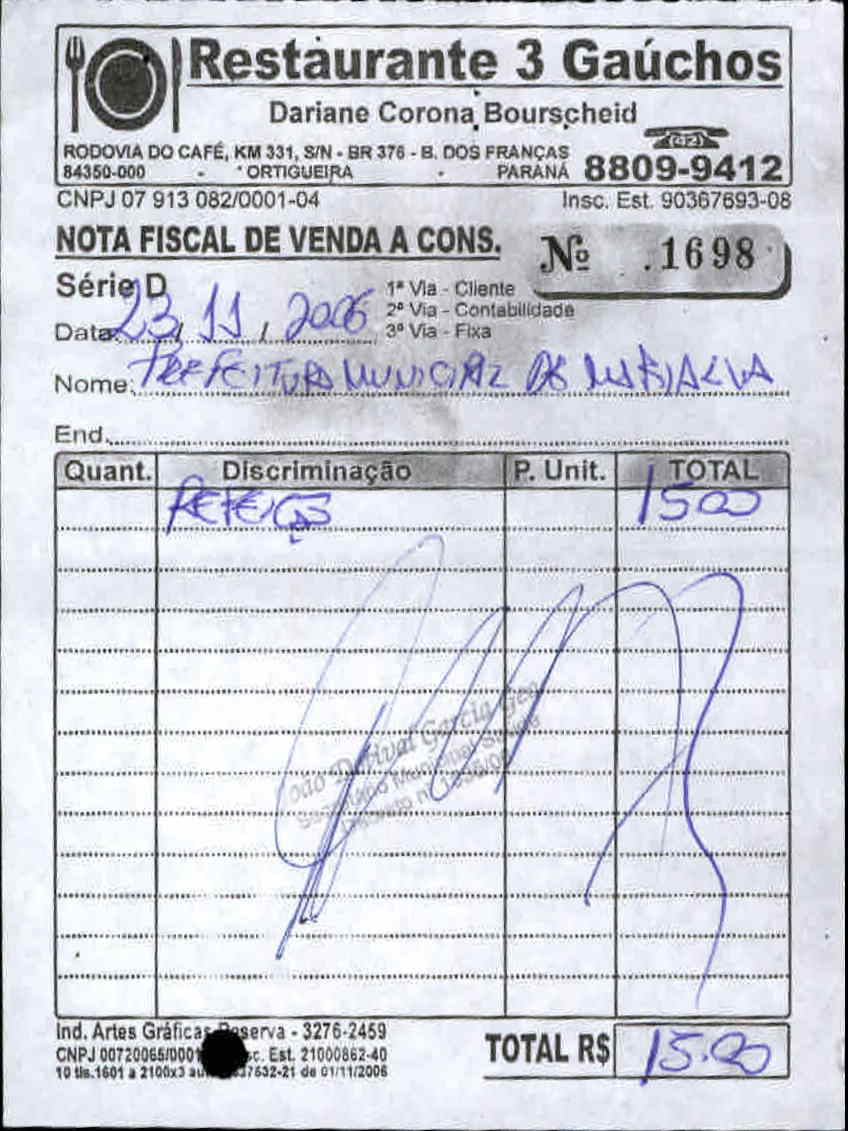 Restaurante 3 Gaúchos
Dariane Corona Bourscheid
RODOVIA DO CAFÉ, KM 331, S/N - BR 376 - B. DOS FRANÇAS
84350-000 - ORTIGUEIRA - PARANÁ 8809-9412
CNPJ 07 913 082/0001-04 Insc. Est. 90367693-08
NOTA FISCAL DE VENDA A CONS. Nº 1698
Série D
1ª Via - Cliente
2ª Via - Contabilidade
3ª Via - Fixa
Data: 23 / 11 / 2006
Nome: PREFEITURA MUNICIPAL DE MARIALVA
End.
Quant. Discriminação P. Unit. TOTAL
REFEIÇÕES 1500
João Dorival Garcia
Secretário Municipal Saúde
Decreto nº
Ind. Artes Gráficas Reserva - 3276-2459
CNPJ 00720065/0001 Est. 21000862-40
10 tls. 1601 a 2100x3 37632-21 de 01/11/2006
TOTAL R$ 15.00